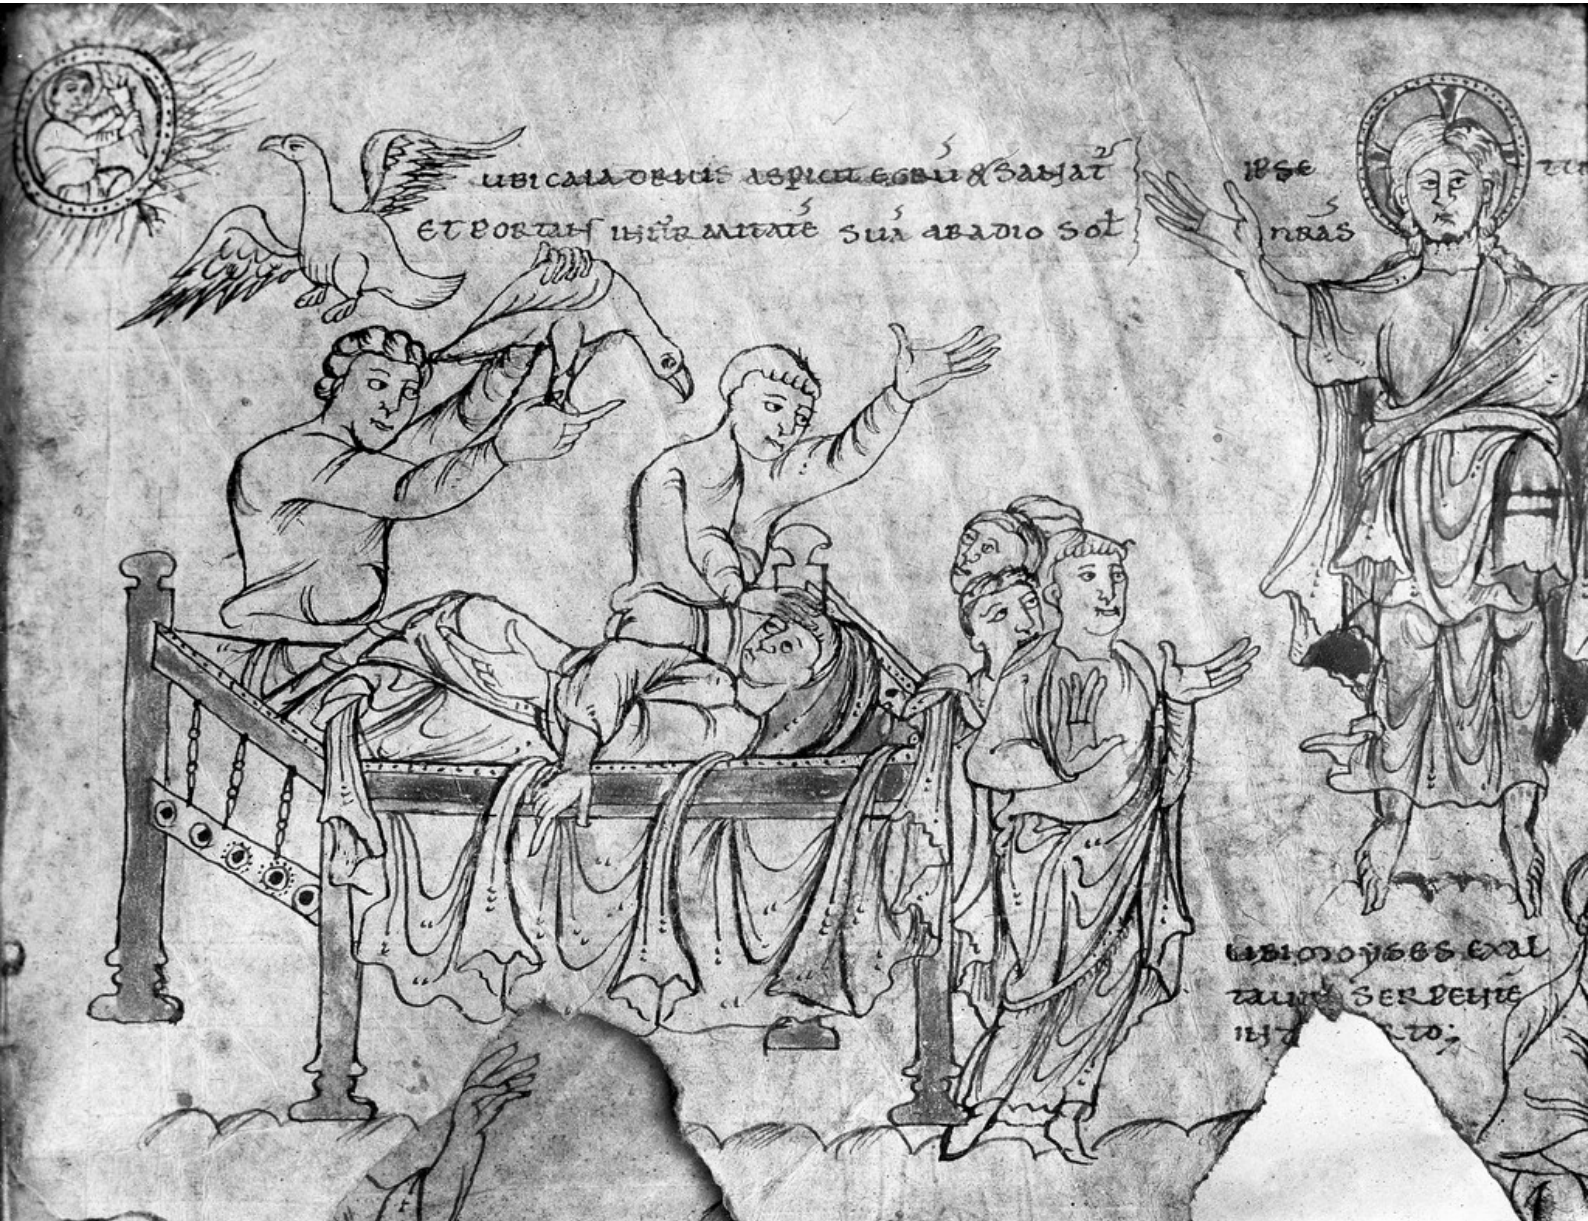 UBI CALADRIUS ASPICIT EGRŪ & SANAT̄
ET PORTANS INFIRMITATĒ SUĀ A RADIO SOL
IPSE
NRAS
UBI MOYSES EXAL
TAUIT SERPENTĒ
IN
TO;